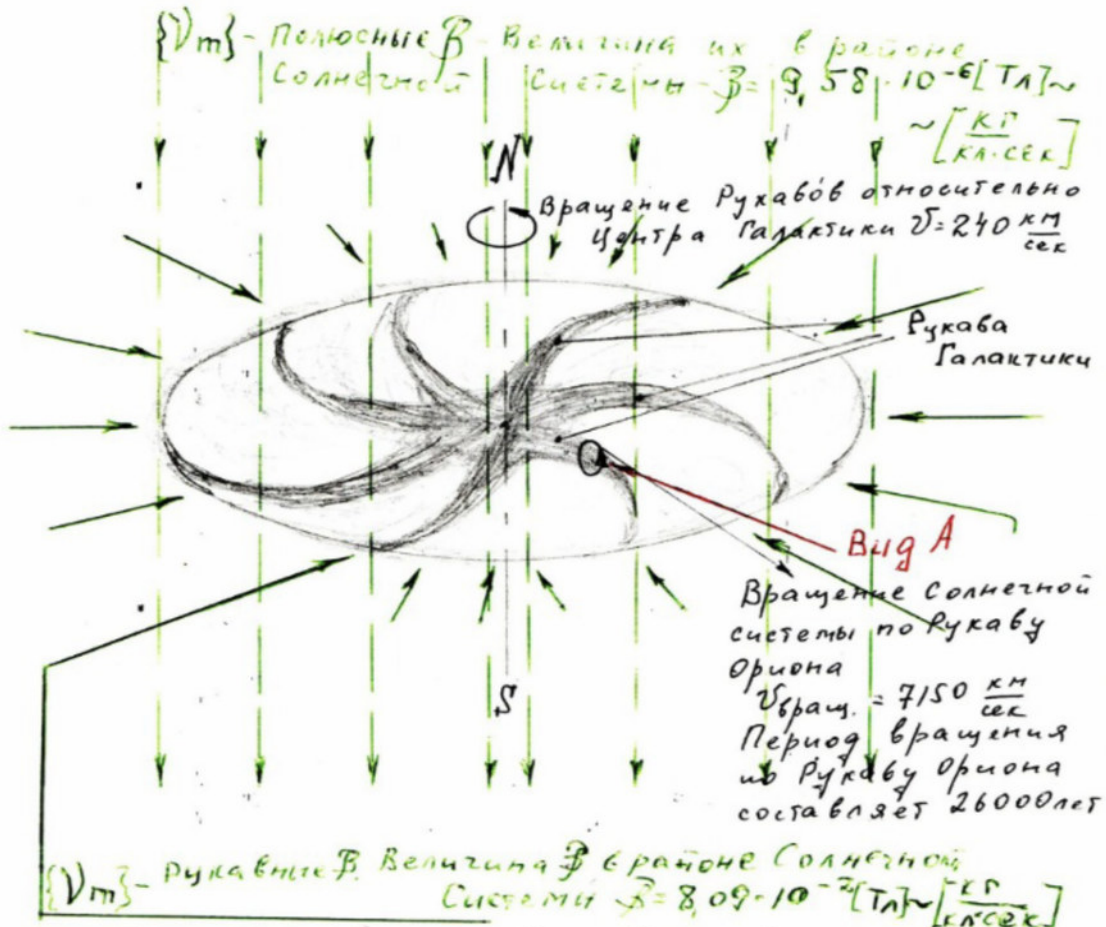 {Vm} - Полюсные B - Величина их в районе
Солнечной Системы - B = 9,58 · 10⁻⁶ [Тл] ~
~ [кг / кл·сек]
N
Вращение Рукавов относительно
Центра Галактики V = 240 км/сек
Рукава
Галактики
Вид А
Вращение Солнечной
системы по Рукаву
Ориона
Vвращ. = 7150 км/сек
Период вращения
по Рукаву Ориона
составляет 26000 лет
S
{Vm} - Рукавные B. Величина B в районе Солнечной
Системы B = 8,09 · 10⁻² [Тл] ~ [кг / кл·сек]